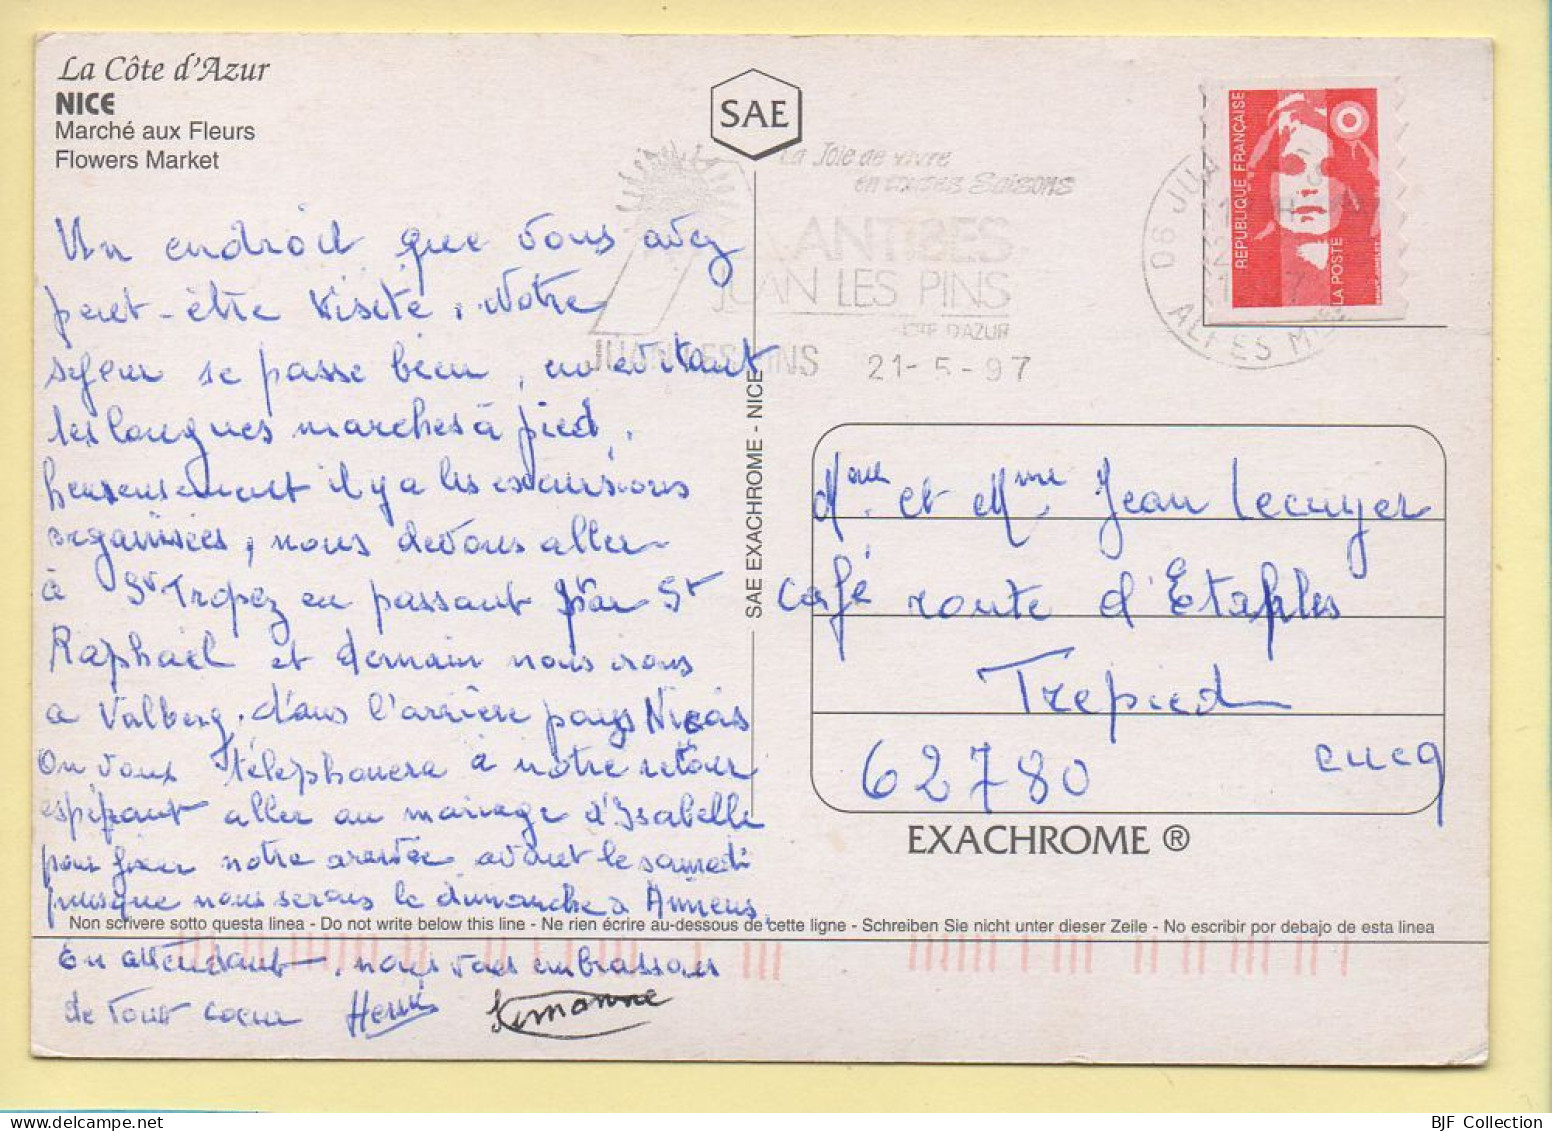 La Côte d'Azur
NICE
Marché aux Fleurs
Flowers Market
SAE
La Joie de vivre
en toutes Saisons
ANTIBES
JUAN LES PINS
CÔTE D'AZUR
JUAN LES PINS
21-5-97
06 JUAN
ALPES MME
REPUBLIQUE FRANÇAISE
LA POSTE
Un endroit que vous avez
peut-être visité. Notre
séjour se passe bien, en évitant
les longues marches à pied.
heureusement il y a les excursions
organisées, nous devons aller
à St Tropez en passant par St
Raphaël et demain nous irons
à Valberg, dans l'arrière pays Niçois
On vous téléphonera à notre retour
espérant aller au mariage d'Isabelle
pour fixer notre arrivée avant le samedi
puisque nous serons le dimanche à Amiens.
En attendant, nous vous embrassons
de tout coeur Hervé Simonne
SAE EXACHROME - NICE
et Mme Jean Lecuyer
Café route d'Etaples
Trepied
62780 cucq
EXACHROME ®
Non scrivere sotto questa linea - Do not write below this line - Ne rien écrire au-dessous de cette ligne - Schreiben Sie nicht unter dieser Zeile - No escribir por debajo de esta linea
BJF Collection